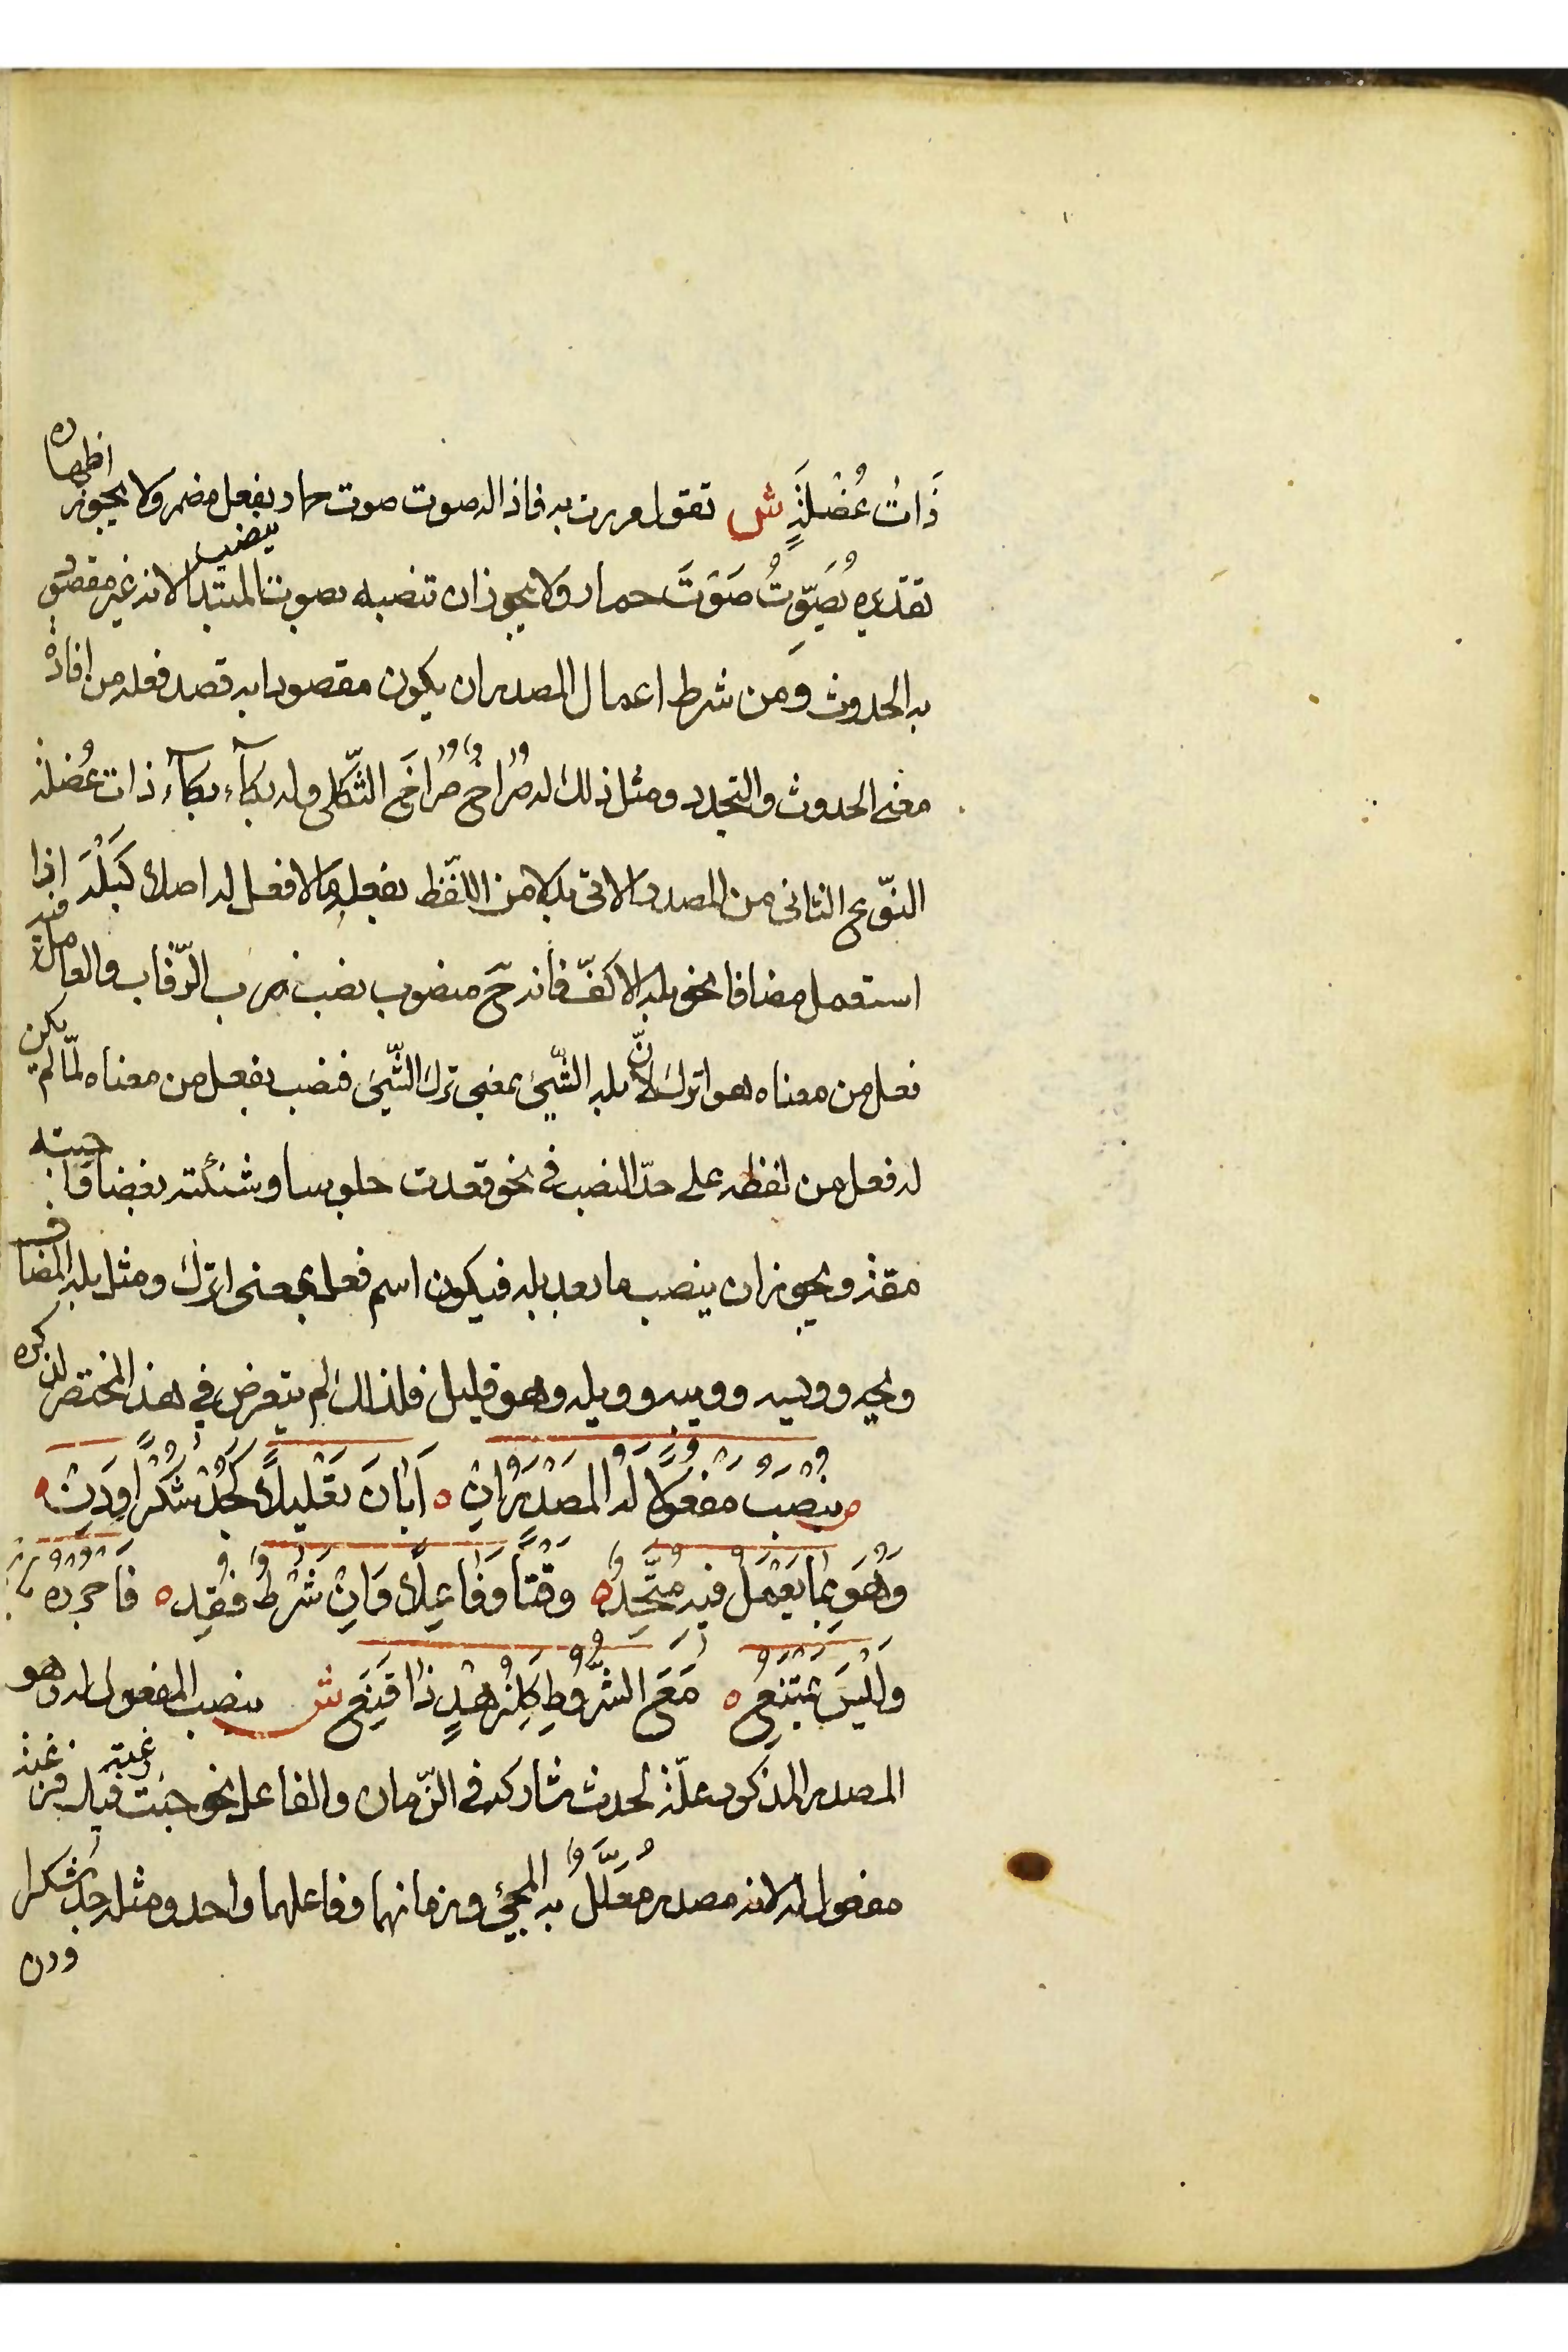 ذَاتُ عُضْلَةٍ ش تقول مررت به فاذا له صوت صوت حمار بفعل مضمر ولا يجوز اظهاره
تقديره يُصَوِّتُ صَوْتَ حمار ولا يجوز ان تنصبه بصوت المبتدا لانه غير مقصود
به الحدوث ومن شرط اعمال المصدر ان يكون مقصودا به قصد فعله من افادة
معنى الحدوث والتجدد ومثل ذلك له صُرَاخٌ صُرَاخَ الثَّكلى وله بكآء بكآء ذات عُضلة
النّوع الثانى من المصدر الاتى بدلا من اللّفظ بفعله ما لا فعل له اصلا كَبَلْهَ اذا
استعمل مضافا نحو بله الاكفّ فانه ح منصوب نصب ضرب الرّقاب والعامل فيه
فعل من معناه هو اترك لانّ بله الشّيئ بمعنى ترك الشّيئ فنصب بفعل من معناه لمّا لم يكن
له فعل من لفظه على حدّ النصب فى نحو قعدت جلوسا وشنئته بغضا
مقة ويجوز ان ينصب ما بعد بله فيكون اسم فعل بمعنى اترك ومثل بله المضاف
ويحه وويسه وويبه وويله وهو قليل فلذلك لم يتعرض فى هذا المختصر لذكره
ص ينْصَبُ مَفْعُولًا لَهُ الْمَصْدَرُ اِنْ ه اَبَانَ تَعْلِيلًا كَجُدْ شُكْرًا وَدِنْ ه
وَهُوَ بِمَا يَعْمَلُ فيهِ مُتَّحِدْ ه وَقْتًا وَفَاعِلًا وَاِنْ شَرْطٌ فُقِدْ ه فَاجْرُرْهُ
وَلَيْسَ يَمْتَنِعْ ه مَعَ الشُّرُوطِ كَلِزُهْدٍ ذَا قَنِعْ ش ينصب المفعول له وهو
المصدر المذكور علّة لحدث شاركه فى الزّمان والفاعل نحو جئت رغبة فيك فرغبة
مفعول له لانه مصدر مُعَلَّلٌ به المجيئ وزمانهما وفاعلهما واحد ومثله جد شكرا
ودن